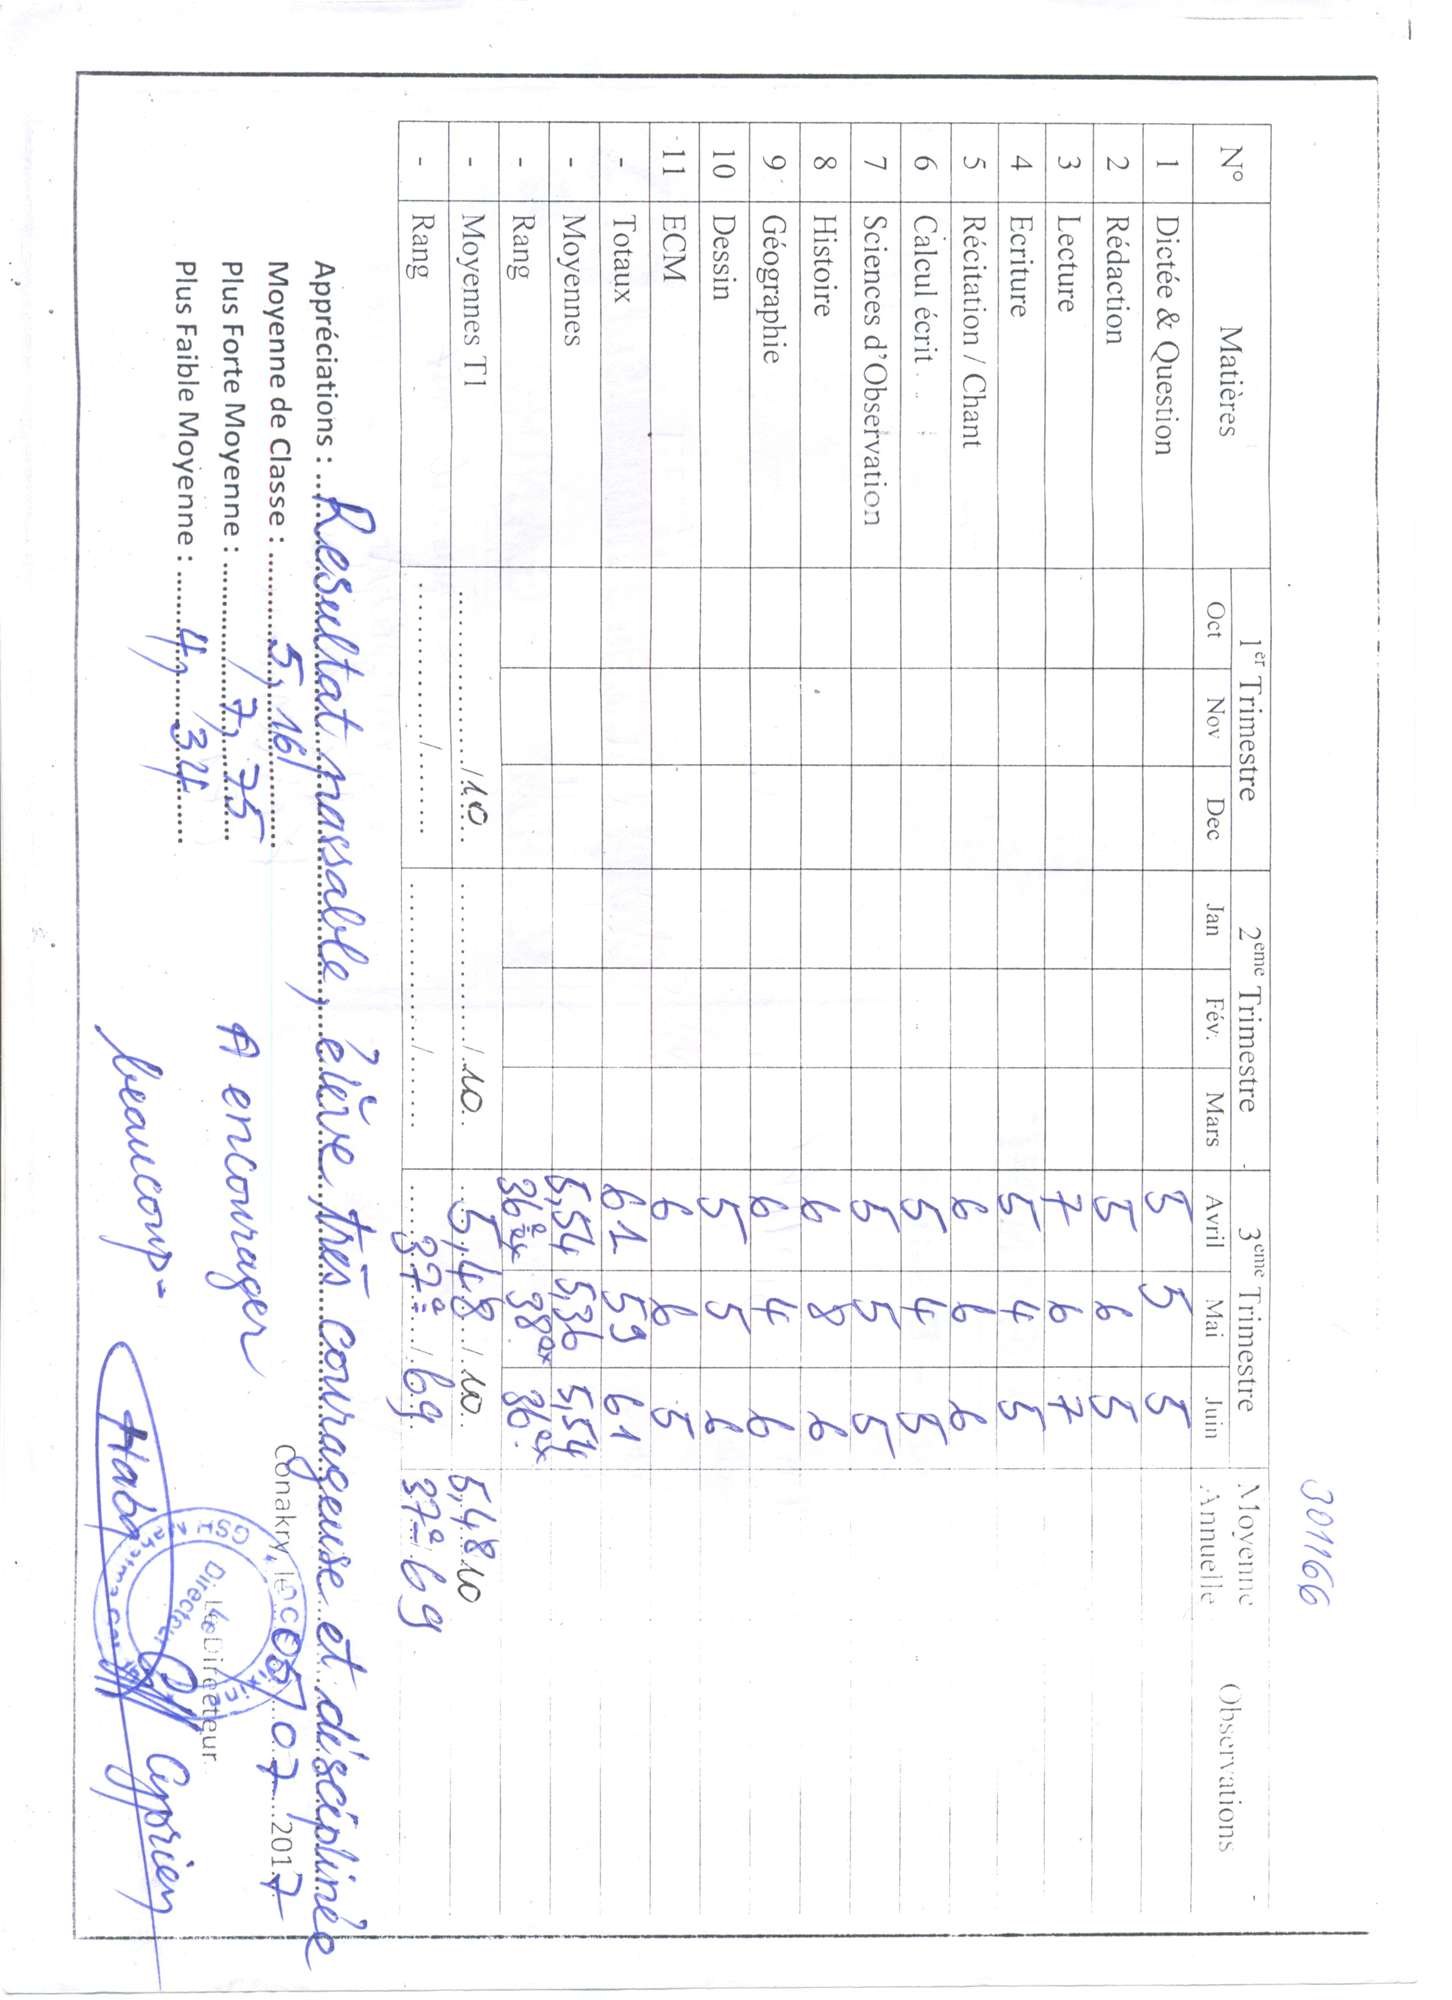 301166
N° Matières 1er Trimestre 2eme Trimestre 3eme Trimestre Moyenne Annuelle Observations
Oct Nov Dec Jan Fév. Mars Avril Mai Juin
1 Dictée & Question 5 5 5
2 Rédaction 5 6 5
3 Lecture 7 6 7
4 Ecriture 5 4 5
5 Récitation / Chant 6 6 6
6 Calcul écrit 5 4 5
7 Sciences d'Observation 5 5 5
8 Histoire 6 8 6
9 Géographie 6 4 6
10 Dessin 5 5 6
11 ECM 6 6 5
- Totaux 61 59 61
- Moyennes 5,54 5,36 5,54
- Rang 36e ex 38e ex 36 ex
- Moyennes T1 ............/10 ............/10 5,48/10 5,48 10
- Rang ............/............ ............/............ 37e/69 37e 69
Appréciations : Resultat passable, élève très courageuse et disciplinée
Moyenne de Classe : 5,16 Conakry, le 05/07/2017
Plus Forte Moyenne : 7,75 A encourager Le Directeur
Plus Faible Moyenne : 4,34 beaucoup-
Cyprien